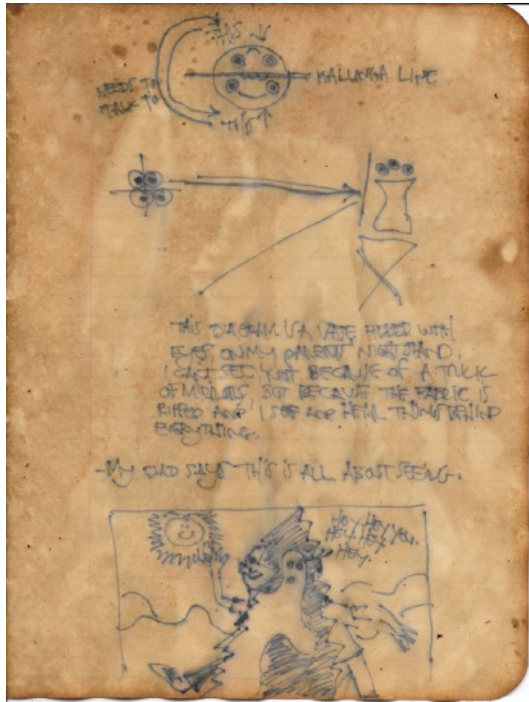 THIS
NEEDS TO
TALK TO
KALUNGA LINE
THIS
THIS DIAGRAM IS A VASE FILLED WITH
EYES ON MY PARENT NIGHTSTAND.
I CAN SEE NOT BECAUSE OF A TRICK
OF MIRRORS, BUT BECAUSE THE FABRIC IS
RIPPED AND I SEE AND HEAR THINGS BEHIND
EVERYTHING.
-MY DAD SAYS THIS IS ALL ABOUT SEEING.
HEY, HEY YOU.
HEY, HEY
HEY.